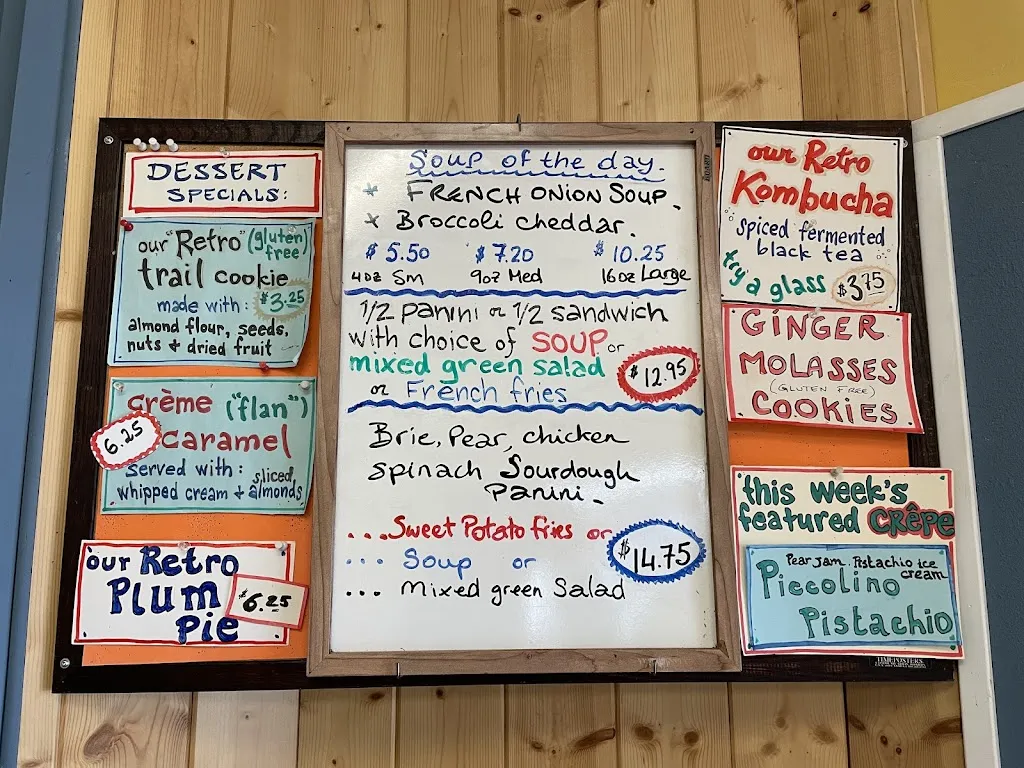 DESSERT
SPECIALS:
our "Retro" (gluten free)
trail cookie
made with: $3.25
almond flour, seeds,
nuts & dried fruit
crème ("flan")
6.25 caramel
served with: sliced
whipped cream & almonds
our Retro
Plum
Pie
$6.25
Soup of the day.
* FRENCH ONION SOUP.
* Broccoli cheddar.
$5.50 $7.20 $10.25
4oz Sm 9oz Med 16oz Large
1/2 panini or 1/2 sandwich
with choice of SOUP or
mixed green salad
or French fries
$12.95
Brie, Pear, chicken
spinach Sourdough
Panini.
...Sweet Potato fries or
... Soup or
... Mixed green Salad
$14.75
our Retro
Kombucha
spiced fermented
black tea
try a glass $3.75
GINGER
MOLASSES
(GLUTEN FREE)
COOKIES
this week's
featured CRÊPE
Pear Jam. Pistachio ice
cream
Piccolino
Pistachio